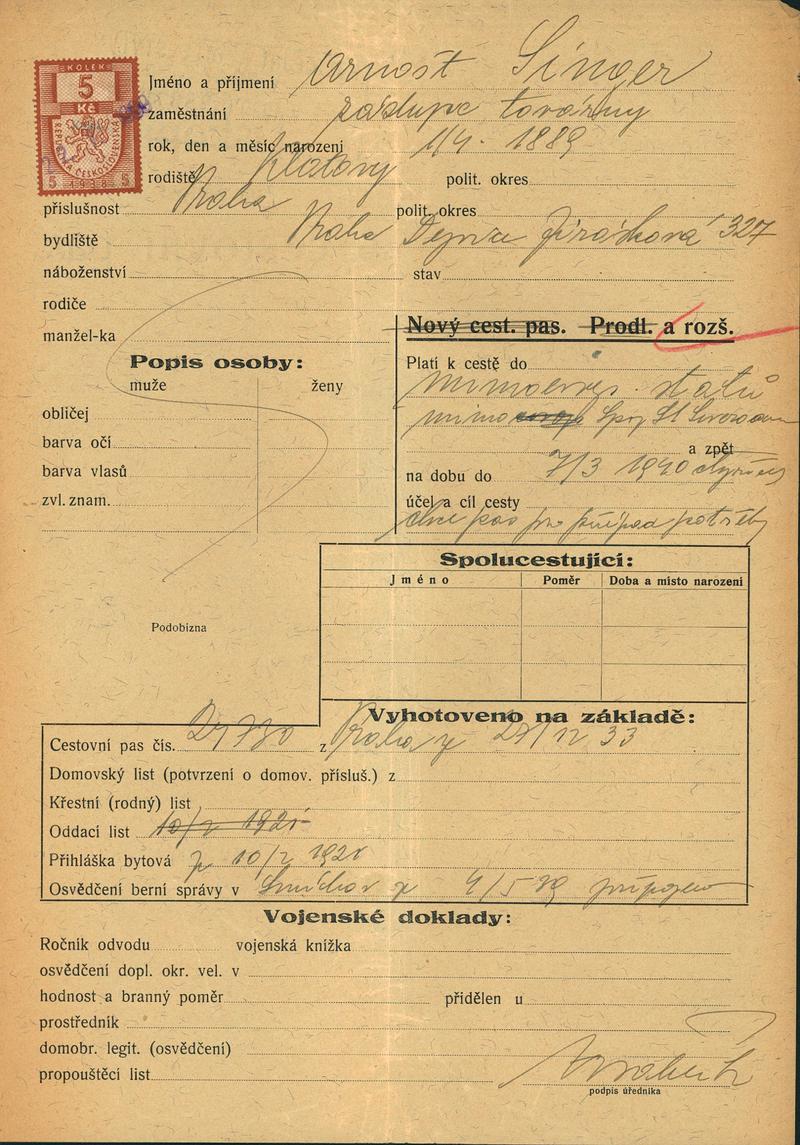 KOLEK
5
Kč
REPUBLIKA ČESKOSLOVENSKÁ
5 1938 5
Jméno a příjmení Arnošt Singer
zaměstnání zástupc továrny
rok, den a měsíc narození 1/4. 1889
rodiště Klatovy polit. okres
příslušnost Praha polit. okres
bydliště Praha Dejvice Jiráskova 327
náboženství stav
rodiče
manžel-ka
Nový cest. pas. Prodl. a rozš.
Popis osoby:
muže ženy
obličej
barva očí
barva vlasů
zvl. znam.
Platí k cestě do
mimoevrop. států
mimo Spoj. St. Severoam
a zpět
na dobu do 7/3 1940
účel a cíl cesty
chce pas pro případ potřeby
Spolucestující:
Jméno Poměr Doba a místo narození
Podobizna
Vyhotoveno na základě:
Cestovní pas čís. z Praha z 12 33
Domovský list (potvrzení o domov. přísluš.) z
Křestní (rodný) list
Oddací list
Přihláška bytová z
Osvědčení berní správy v Smíchov z 4/5 39 připojeno
Vojenské doklady:
Ročník odvodu vojenská knížka
osvědčení dopl. okr. vel. v
hodnost a branný poměr přidělen u
prostředník
domobr. legit. (osvědčení)
propouštěcí list
podpis úředníka